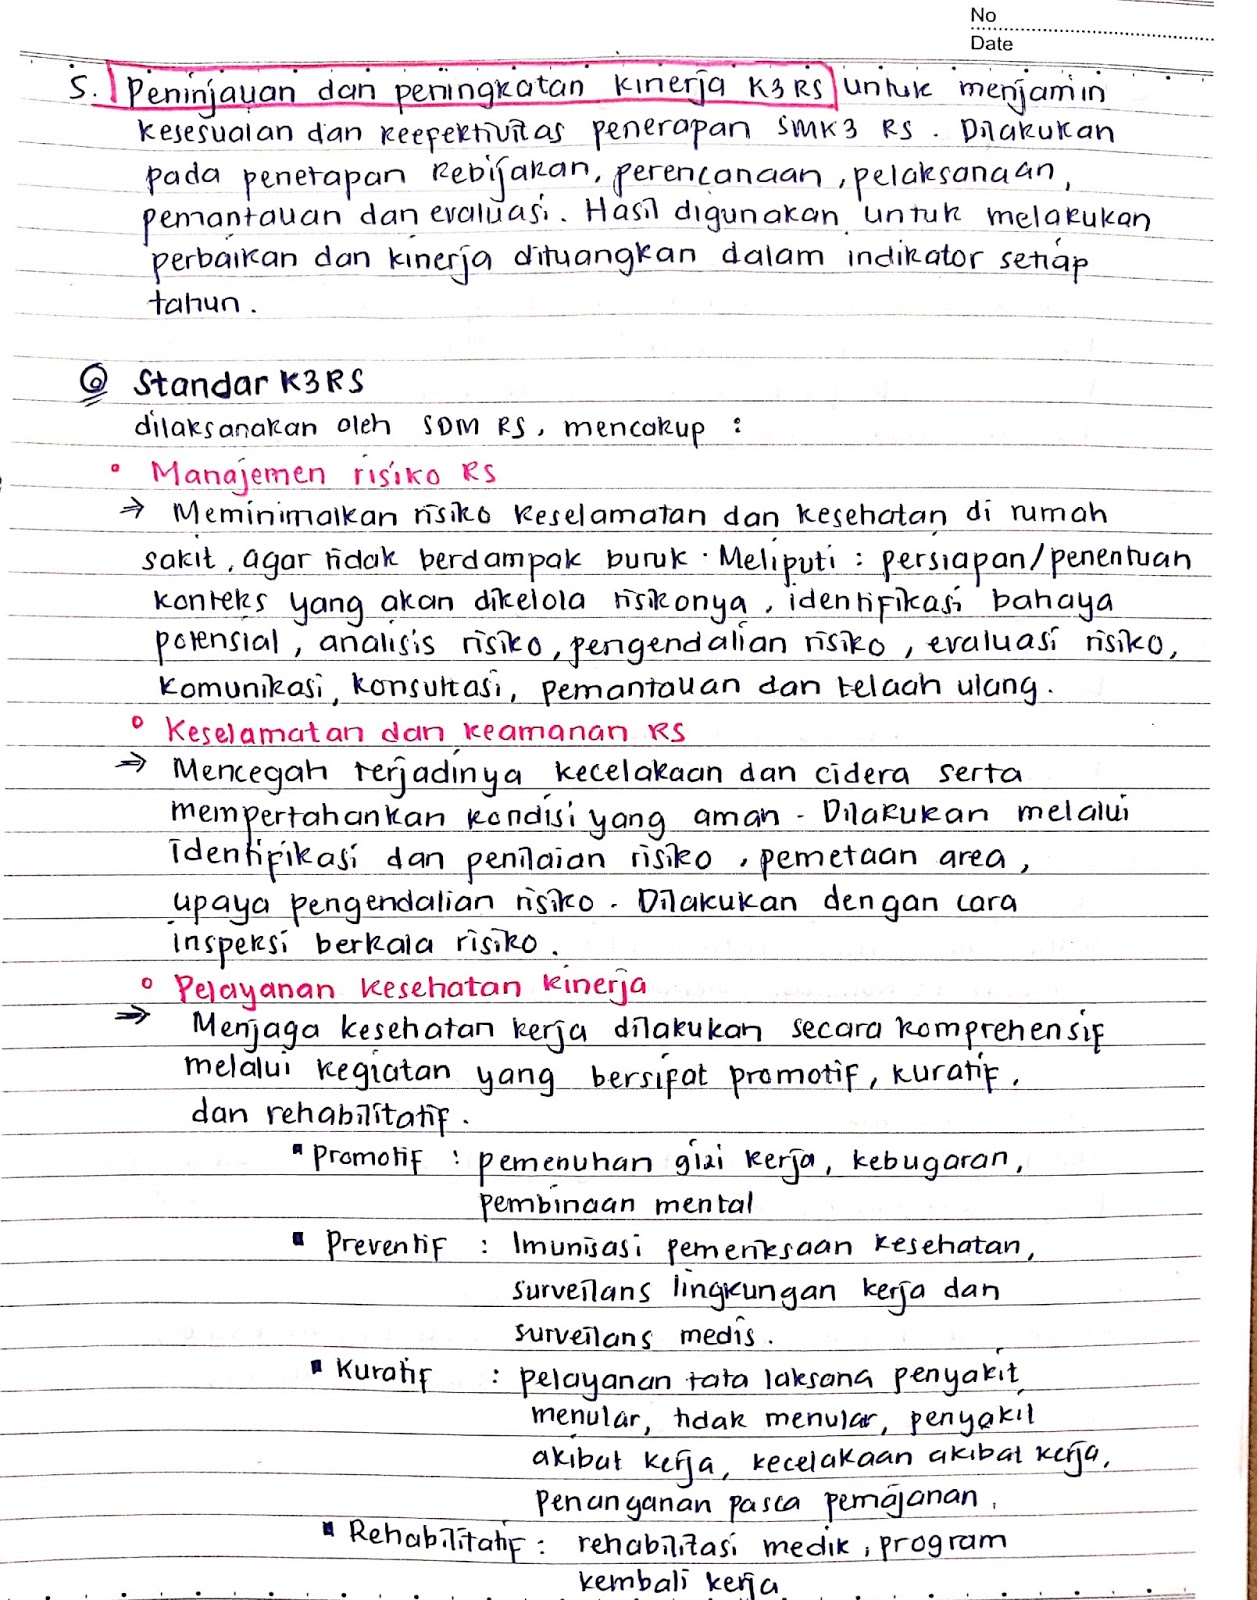 No
Date
5. Peninjauan dan peningkatan kinerja K3RS untuk menjamin
kesesuaian dan keefektivitas penerapan SMK3 RS. Dilakukan
pada penetapan kebijakan, perencanaan, pelaksanaan,
pemantauan dan evaluasi. Hasil digunakan untuk melakukan
perbaikan dan kinerja dituangkan dalam indikator setiap
tahun.
Standar K3RS
dilaksanakan oleh SDM RS, mencakup :
° Manajemen risiko RS
⇒ Meminimalkan risiko keselamatan dan kesehatan di rumah
sakit, agar tidak berdampak buruk. Meliputi : persiapan/penentuan
konteks yang akan dikelola risikonya, identifikasi bahaya
potensial, analisis risiko, pengendalian risiko, evaluasi risiko,
komunikasi, konsultasi, pemantauan dan telaah ulang.
° Keselamatan dan keamanan RS
⇒ Mencegah terjadinya kecelakaan dan cidera serta
mempertahankan kondisi yang aman. Dilakukan melalui
identifikasi dan penilaian risiko, pemetaan area,
upaya pengendalian risiko. Dilakukan dengan cara
inspeksi berkala risiko.
° Pelayanan kesehatan kinerja
⇒ Menjaga kesehatan kerja dilakukan secara komprehensif
melalui kegiatan yang bersifat promotif, kuratif,
dan rehabilitatif.
▪ Promotif : pemenuhan gizi kerja, kebugaran,
pembinaan mental
▪ Preventif : Imunisasi pemeriksaan kesehatan,
surveilans lingkungan kerja dan
surveilans medis.
▪ Kuratif : pelayanan tata laksana penyakit
menular, tidak menular, penyakit
akibat kerja, kecelakaan akibat kerja,
Penanganan pasca pemajanan,
▪ Rehabilitatif : rehabilitasi medik, program
kembali kerja